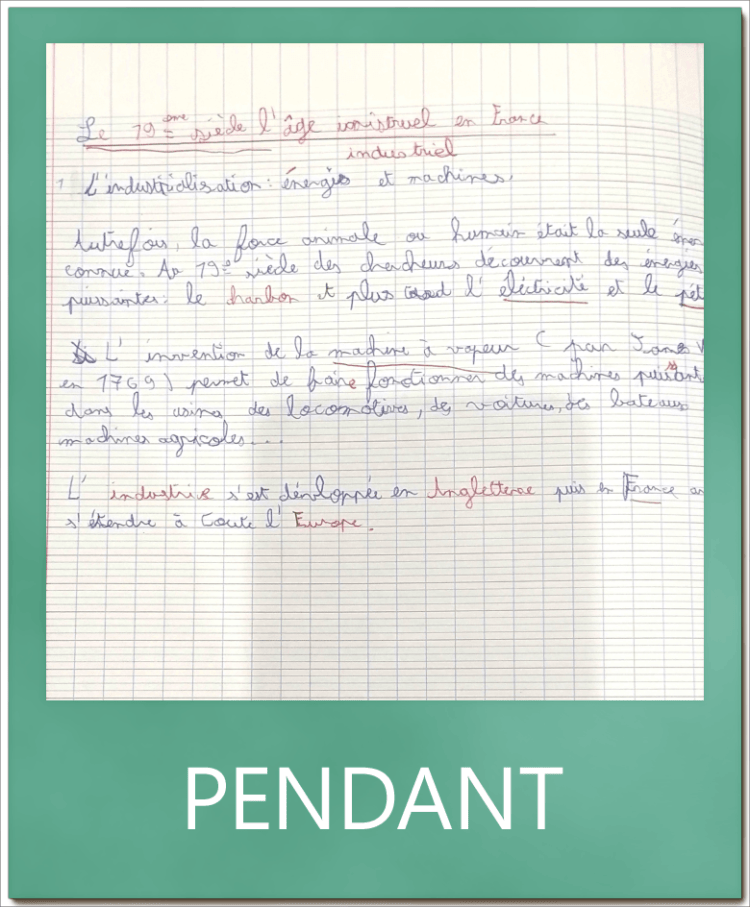 Le 19ème siècle l'âge
en France
industriel
1 L'industrialisation : énergies et machines.
Autrefois, la force animale ou humain était la seule éner
connue. Au 19e siècle des chercheurs découvrent des énergies
puissantes : le charbon et plus tard l'éléctricité et le pét
L'invention de la machine à vapeur ( par James W
en 1769 ) permet de faire fonctionner des machines puissant
dans les usines des locomotives, des voitures, des bateaux
machines agricoles...
L'industrie s'est dévloppée en Angletterae puis en France
s'étendre à toute l'Europe.
PENDANT